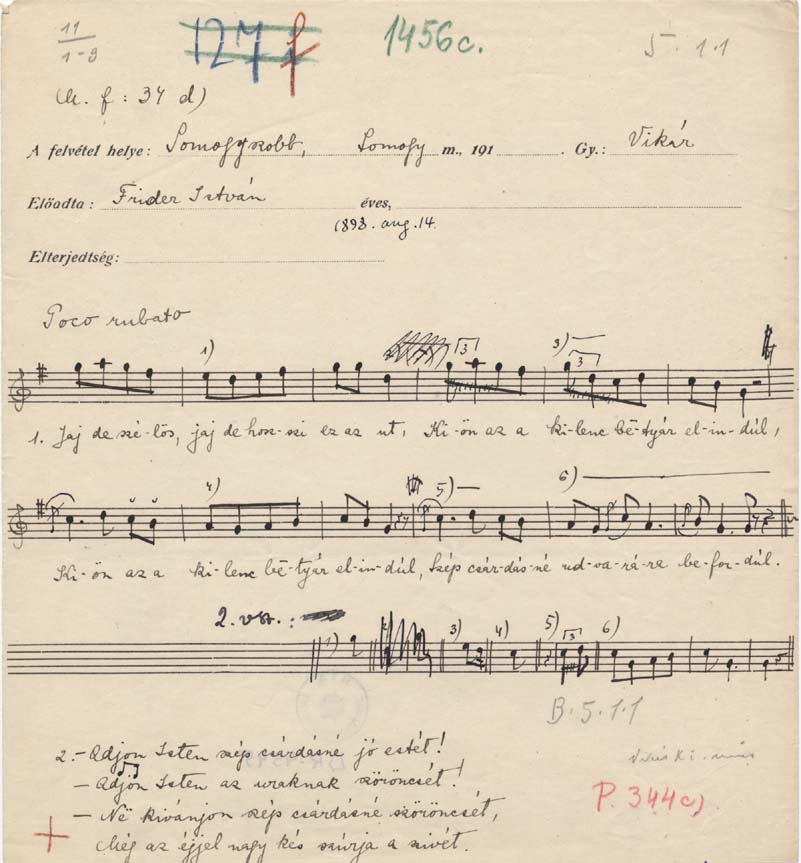 11
1-9
127 f
1456c.
5. 1.1
(M. f: 34 d)
A felvétel helye: Somogyszobb, Somogy m., 191 . Gy.: Vikár
Előadta: Frider István éves,
1898. aug. 14.
Elterjedtség:
Poco rubato
1) 3 3) 3
1. Jaj de szé-lös, jaj de hosz-szi ez az ut, Ki-ön az a ki-lenc bē-tyár el-in-dúl,
4) 5) 6)
Ki-ön az a ki-lenc bē-tyár el-in-dúl, Szép csár-dás-né ud-va-rá-ra be-for-dúl.
2. vsz.:
1) 3) 4) 5) 3 6)
B. 5. 1. 1
2. - Adjon Isten szép csárdásné jó estét!
- Adjon Isten az uraknak szöröncsét!
P. 344c)
- Në kivánjon szép csárdásné szöröncsét,
Még az éjjel nagy kés szúrja a szivét.